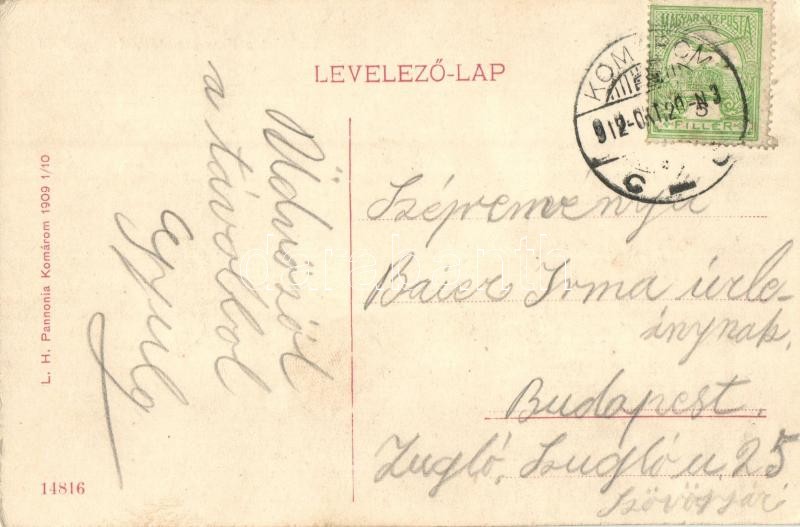 LEVELEZŐ-LAP
MAGYAR KIR. POSTA
5
FILLÉR
KOMÁROM
912-OKT.20-N3
Üdvözöl
a távolból
L. H. Pannonia Komárom 1909 1/10
14816
Szépreményü
Baier Irma úrle-
ánynak,
Budapest,
Zugló, Zugló u. 25
darabanth